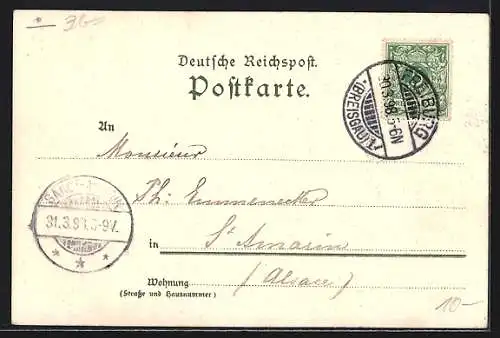 36
Deutsche Reichspost.
Postkarte.
FREIBURG
30.3.98.5-6N
(BREISGAU)
An
Monsieur
Th: Emmenecker
SANCT-
31.3.98.8-9V.
in St Amarin
Wohnung (Alsace)
(Straße und Hausnummer)
10-